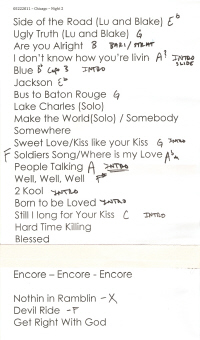 05/22/2011 – Chicago – Night 2
Side of the Road (Lu and Blake) E♭
Ugly Truth (Lu and Blake) G
Are you Alright B BARI/STRAT
I don't know how you're livin A INTRO SLIDE
Blue INTRO
Jackson E♭
Bus to Baton Rouge G
Lake Charles (Solo)
Make the World(Solo) / Somebody
Somewhere
Sweet Love/Kiss like your Kiss G INTRO
F Soldiers Song/Where is my Love A♭
People Talking A INTRO
Well, Well, Well F
2 Kool INTRO
Born to be Loved INTRO
Still I long for Your Kiss C INTRO
Hard Time Killing
Blessed
Encore – Encore - Encore
Nothin in Ramblin – X
Devil Ride – F
Get Right With God